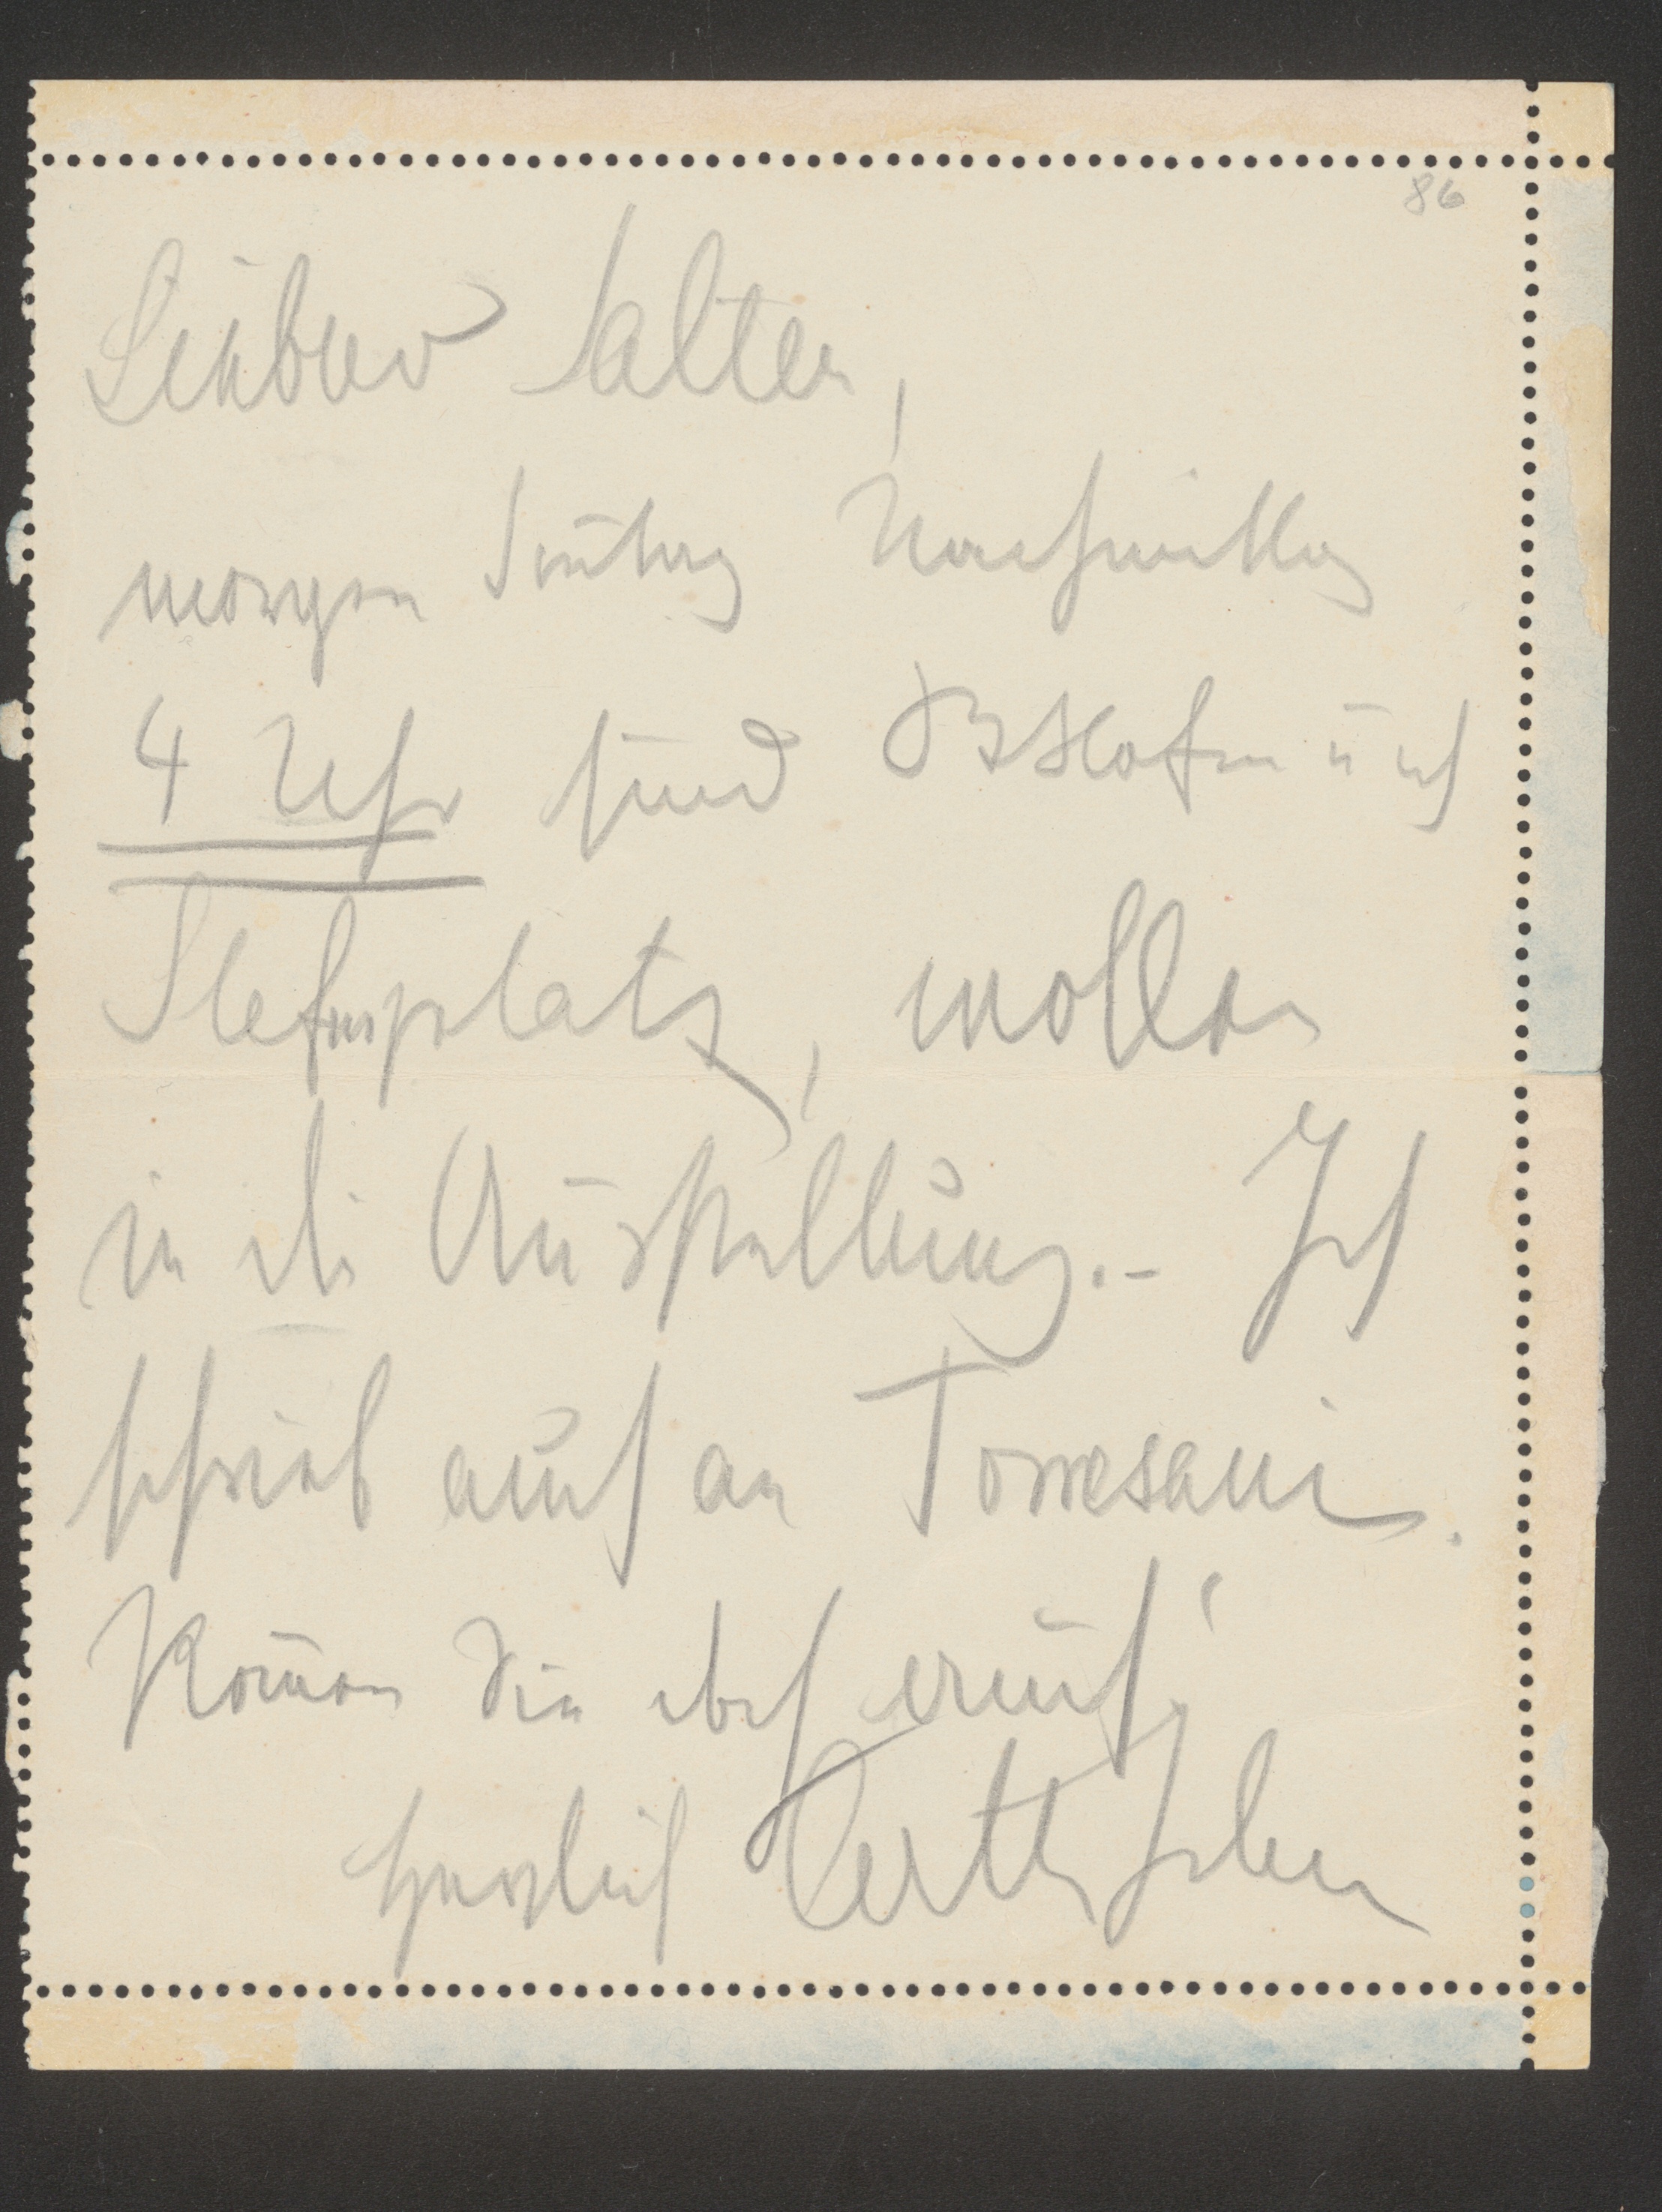 86
Lieber Salten,
morgen Sōntag Nachmittag
4 Uhr sind BHofm u ich
Stefnsplatz, wollen
in die Ausstellung. – Ich
schrieb auch an Torresani.
Kom̄en Sie doch auch!
Herzlich ArthSchn